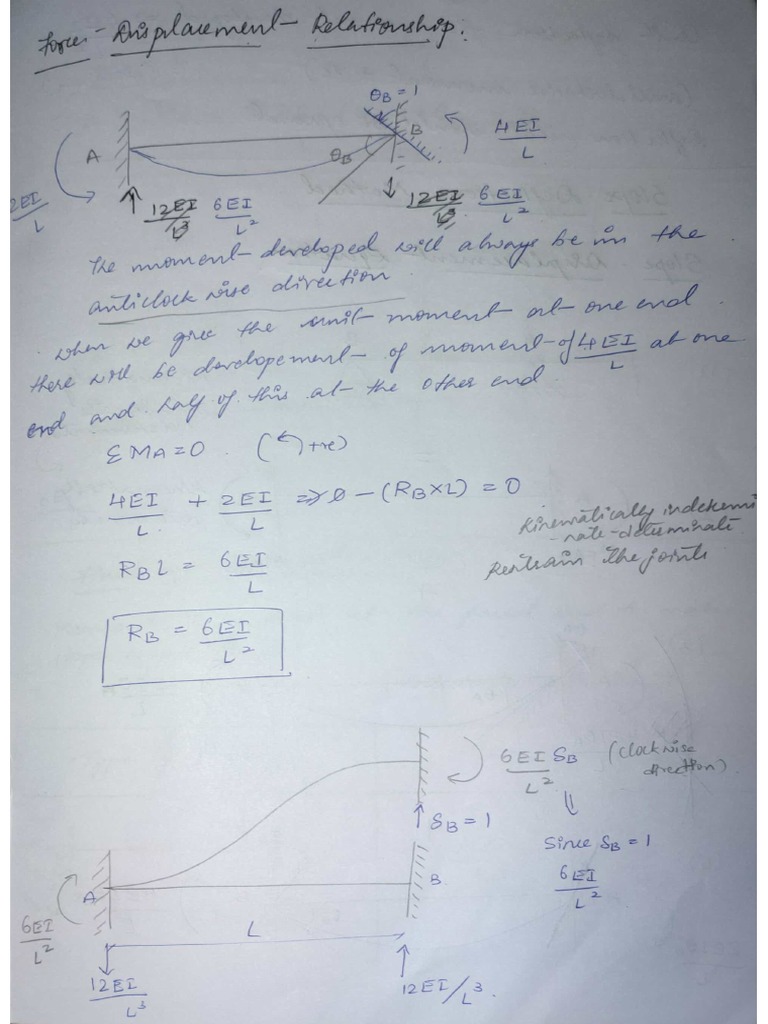 Force-Displacement Relationship.
θB = 1
A
B
4EI/L
θB
2EI/L
12EI/L³ 6EI/L²
12EI/L³ 6EI/L²
The moment developed will always be in the
anticlockwise direction
when we give the unit moment at one end
there will be developement of moment of 4EI/L at one
end and half of this at the other end
ΣMA=0 . ( ↰ +ve)
4EI/L + 2EI/L ⇒ 0 - (RB×L) = 0
Kinematically indetermi
-nate-determinate
Restrain the joints
RB L = 6EI/L
RB = 6EI/L²
6EI/L² δB (clockwise
direction)
⇓
δB = 1
Since δB = 1
6EI/L²
A
B
6EI/L²
L
12EI/L³
12EI/L³.